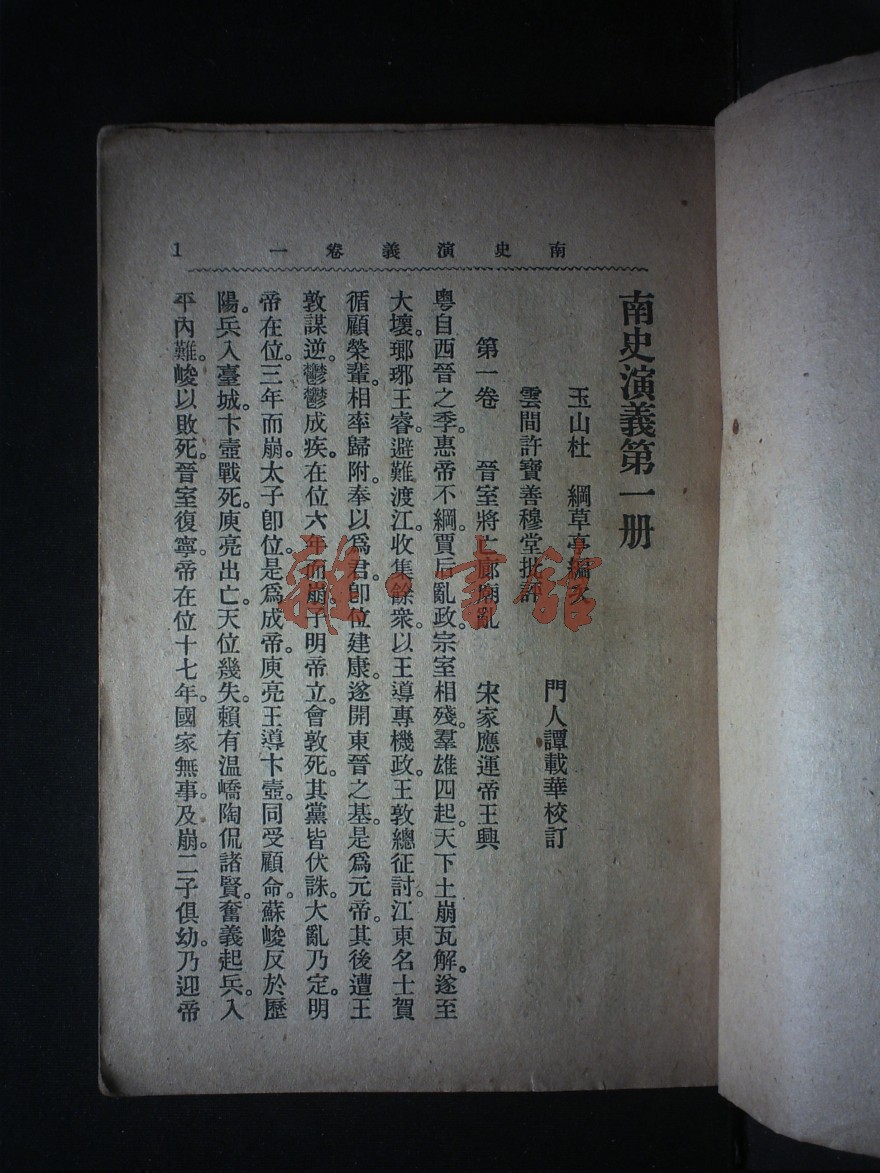 南史演義卷一
1
南史演義第一册
玉山杜　綱草亭編次
雲間許寶善穆堂批評
門人譚載華校訂
第一卷　晉室將亡廊廟亂　宋家應運帝王興
粵自西晉之季。惠帝不綱。賈后亂政。宗室相殘。羣雄四起。天下土崩瓦解。遂至
大壞。瑯琊王睿。避難渡江。收集餘衆。以王導專機政。王敦總征討。江東名士賀
循顧榮輩。相率歸附。奉以爲君。卽位建康。遂開東晉之基。是爲元帝。其後遭王
敦謀逆。鬱鬱成疾。在位六年而崩。子明帝立。會敦死。其黨皆伏誅。大亂乃定。明
帝在位。三年而崩。太子卽位。是爲成帝。庾亮王導卞壼。同受顧命。蘇峻反於歷
陽。兵入臺城。卞壼戰死。庾亮出亡。天位幾失。賴有温嶠陶侃諸賢。奮義起兵。入
平內難。峻以敗死。晉室復寧。帝在位十七年。國家無事。及崩。二子俱幼。乃迎帝
雜·書館